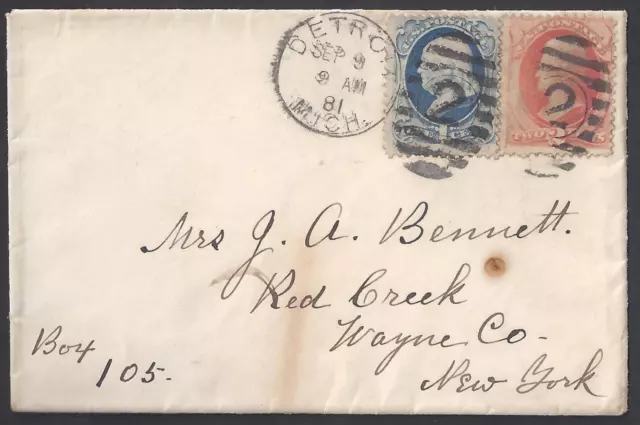 DETROI
SEP 9
9 AM
81
MICH.
U.S. POSTAGE
2
2
Mrs J. A. Bennett.
Red Creek
Wayne Co.
New York
Box
105.